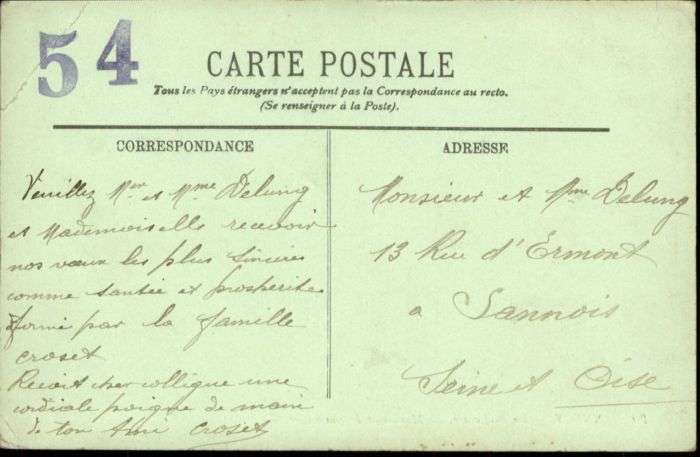 54
CARTE POSTALE
Tous les Pays étrangers n'acceptent pas la Correspondance au recto.
(Se renseigner à la Poste).
CORRESPONDANCE
Veuillez Mr et Mme Delung
et Mademoiselle recevoir
nos vœux les plus sincères
comme santée et prosperité
formé par la famille
croset
Recoit cher collègue une
cordiale poigne de main
de ton Ami Croset
ADRESSE
Monsieur et Mme Delung
13 Rue d'Ermont
a Sannois
Seine et Oise